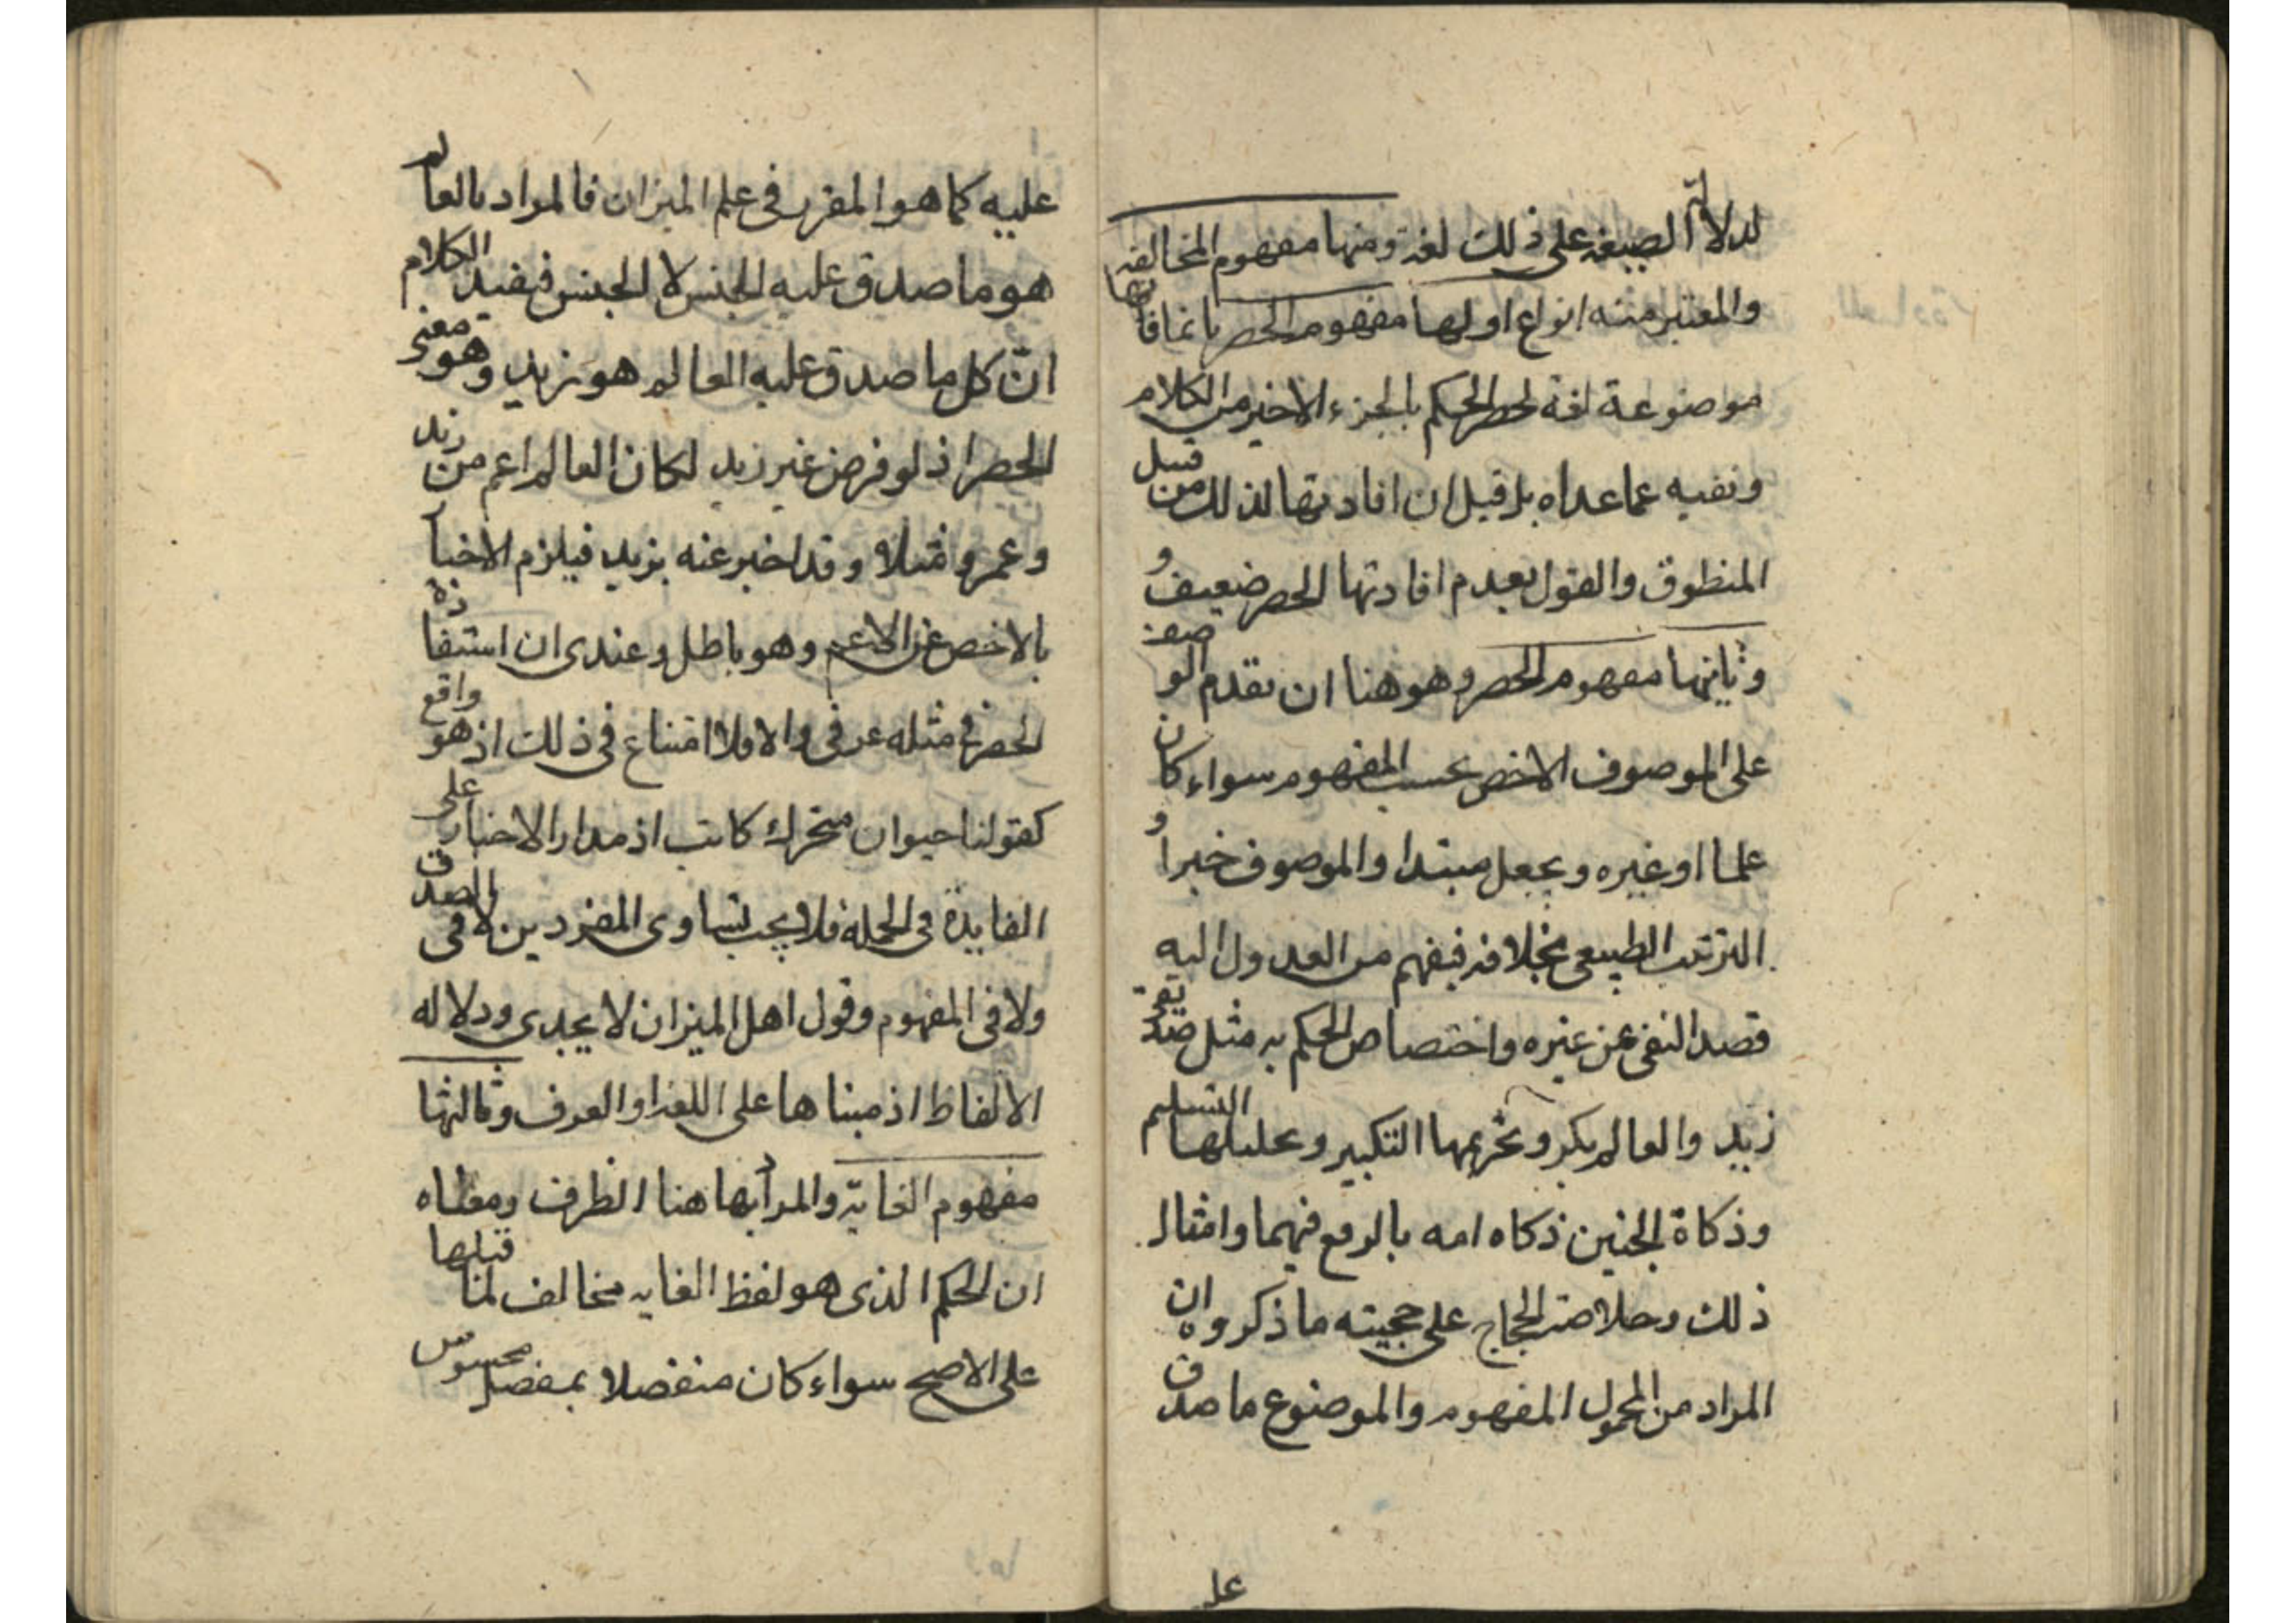 لدلالة الصيغة على ذلك لغة ومنها مفهوم المخالفة
والمعتبر منه انواع اولها مفهوم الحصر بانما فانها
موضوعة لغة لحصر الحكم بالجزء الاخير من الكلام
ونفيه عما عداه بل قيل ان افادتها لذلك من قبيل
المنطوق والقول بعدم افادتها الحصر ضعيف و
وثانيها مفهوم الحصر وهو هنا ان تقدم الوصف
على الموصوف الاخص بحسب المفهوم سواء كان
علما او غيره ويجعل مبتدا والموصوف خبرا و
الترتيب الطبيعى بخلافه فيفهم من العدول اليه
قصد النفى عن غيره واختصاص الحكم به مثل صديقى
زيد والعالم بكر وتحريمها التكبير وتحليلها التسليم
وذكاة الجنين ذكاه امه بالرفع فيهما وامثال
ذلك وخلاصة الحجاج على حجيته ما ذكروه ان
المراد من المحمول المفهوم والموضوع ما صدق
على
عليه كما هو المقرر فى علم الميزان فالمراد بالعالم
هو ما صدق عليه الجنس لا الجنس فيفيد الكلام
انّ كل ما صدق عليه العالم هو زيد وهو معنى
الحصر اذ لو فرض غير زيد لكان العالم اعم من زيد
وعمرو مثلا وقد اخبر عنه بزيد فيلزم الاخبار
بالاخص عن الاعم وهو باطل وعندى ان استفادة
الحصر فى مثله عرفى والا فلا امتناع فى ذلك اذ هو واقع
كقولنا حيوان متحرك كاتب اذ مدار الاخبار على
الفايدة فى الجملة فلا يجب تساوى المفردين لا فى الصدق
ولا فى المفهوم وقول اهل الميزان لا يجدى ودلاله
الالفاظ اذ مبناها على اللغة او العرف وثالثها
مفهوم الغاية والمراد بها هنا الطرف ومعناه
ان الحكم الذى هو لفظ الغايه مخالف لما قبلها
على الاصح سواء كان منفصلا بمفصل محسوس